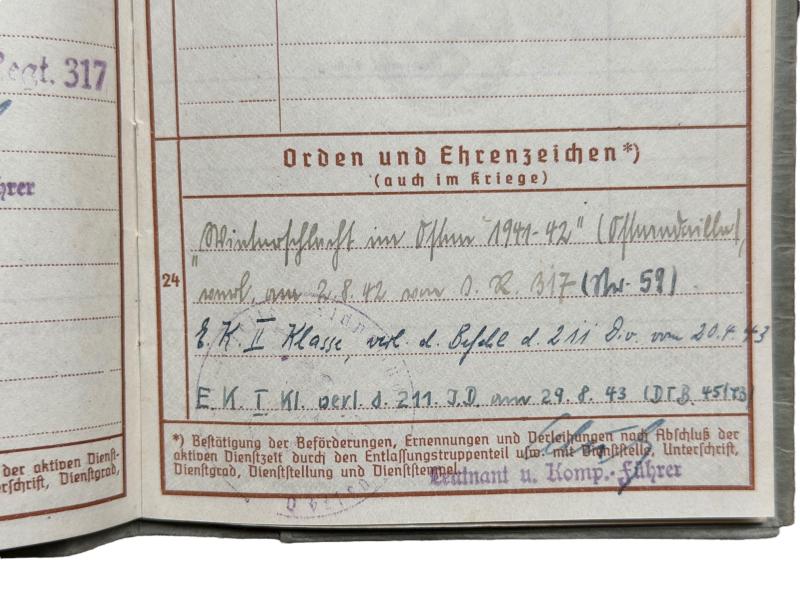 Regt. 317
hrer
der aktiven Dienst-
erschrift, Dienstgrad,
Orden und Ehrenzeichen*)
(auch im Kriege)
24
"Winterschlacht im Osten 1941-42" (Ostmedaille),
verl. am 2.8.42 von J. R. 317 (Nr. 59)
E. K. II Klasse, verl. d. Befehl d. 211 Div. vom 20.4.43
E. K. I Kl. verl. d. 211. J.D. am 29.8.43 (DTB 45/43)
*) Bestätigung der Beförderungen, Ernennungen und Verleihungen nach Abschluß der
aktiven Dienstzeit durch den Entlassungstruppenteil usw. mit Dienststelle, Unterschrift,
Dienstgrad, Dienststellung und Dienststempel.
Leutnant u. Komp.-Führer